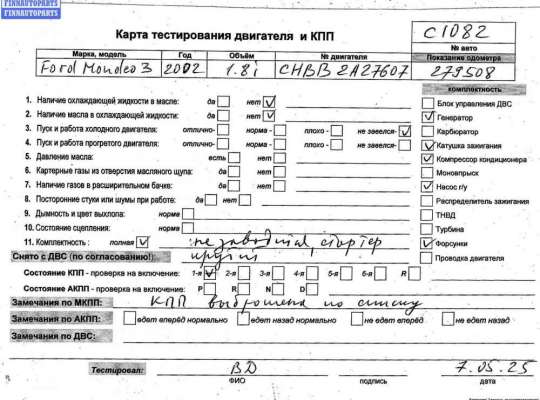 FINNAUTOPARTS
FINNAUTOPARTS
Карта тестирования двигателя и КПП
C1082
№ авто
Марка, модель Год Объём № двигателя Показание одометра
Ford Mondeo 3 2002 1.8i CHBB 2A27607 279508
комплектность
1. Наличие охлаждающей жидкости в масле: да нет
2. Наличие масла в охлаждающей жидкости: да нет
3. Пуск и работа холодного двигателя: отлично- норма - плохо - не завелся-
4. Пуск и работа прогретого двигателя: отлично- норма - плохо - не завелся-
5. Давление масла: есть нет
6. Картерные газы из отверстия масляного щупа: да нет
7. Наличие газов в расширительном бачке: да нет
8. Посторонние стуки или шумы при работе: да нет
9. Дымность и цвет выхлопа: норма
10. Состояние сцепления: норма
11. Комплектность : полная
Блок управления ДВС
Генератор
Карбюратор
Катушка зажигания
Компрессор кондиционера
Моновпрыск
Насос г/у
Распределитель зажигания
ТНВД
Турбина
Форсунки
Проводка двигателя
не заводится, стартер
Снято с ДВС (по согласованию!): крутит
Состояние КПП - проверка на включение: 1-я 2-я 3-я 4-я 5-я 6-я R
Состояние АКПП - проверка на включение: P R N D
Замечания по МКПП: КПП выброшена по списку
Замечания по АКПП: едет вперёд нормально едет назад нормально не едет вперёд не едет назад
Замечания по ДВС:
Тестировал: ВД 7.05.25
ФИО подпись дата